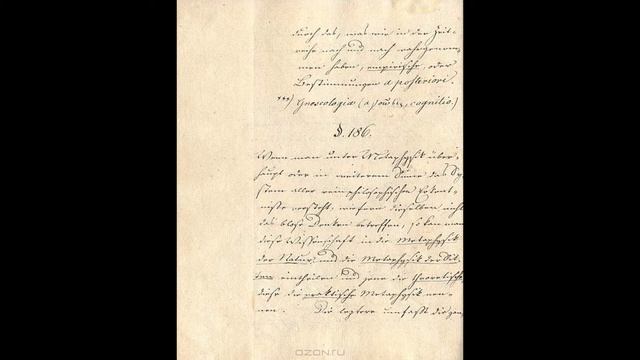 durch das, was wir in der Zeit-
reihe nach und nach wahrgenom-
men haben, empirische, oder
Bestimmungen a posteriori.
***) Gnoseologia (a γνωσις, cognitio.)
§. 186.
Wenn man unter Metaphysik über-
haupt oder in weiterem Sinne das Sy-
stem aller rein philosophischen Erkent-
nisse versteht, wiefern dieselben nicht
das blose Denken betreffen, so kan man
diese Wissenschaft in die Metaphysik
der Natur, und die Metaphysik der Sit-
ten eintheilen und jene die theoretische,
diese die praktische Metaphysik nen-
nen. Die leztere umfasst die
ozon.ru